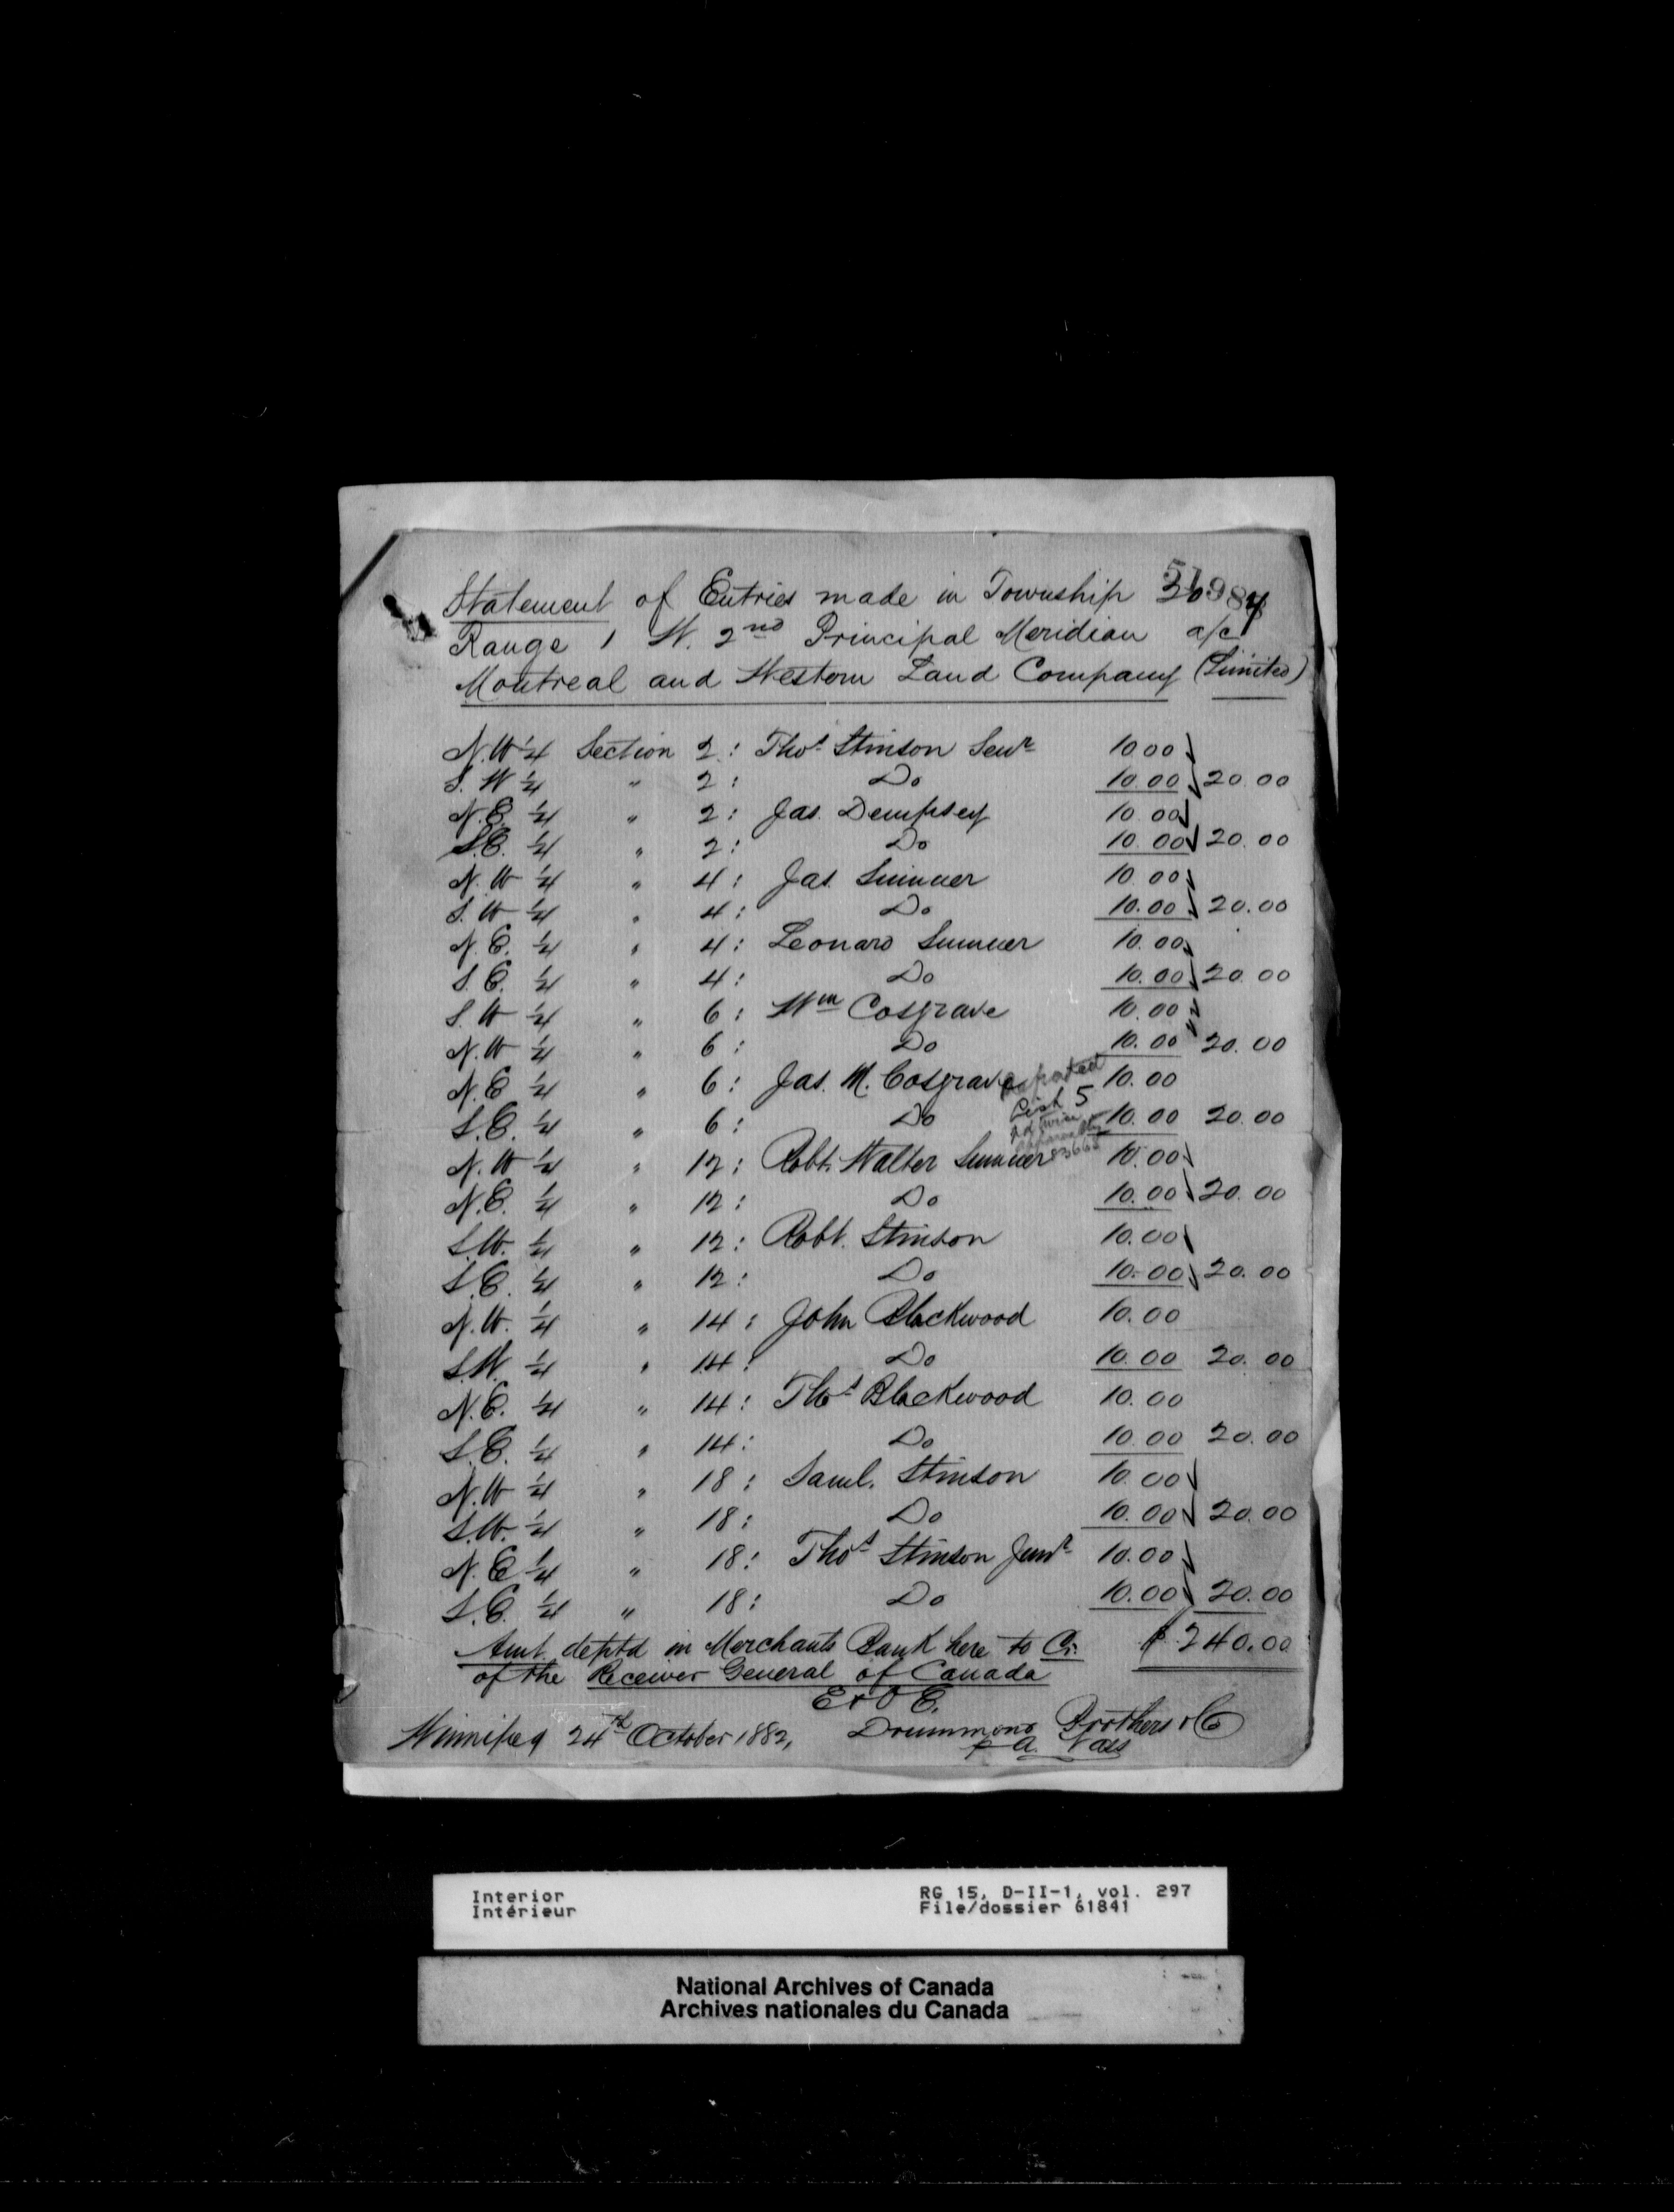 51984
Statement of Entries made in Township 30
Range 1 W. 2nd Principal Meridian a/c
Montreal and Western Land Company (Limited)
N.W 1/4 Section 2: Thos Stinson Senr 10 00
S. W 1/4 " 2: Do 10.00 20.00
N.E. 1/4 " 2: Jas. Dempsey 10 00
S.E. 1/4 " 2: Do 10.00 20.00
N. W 1/4 " 4: Jas Sumner 10 00
S. W 1/4 " 4: Do 10.00 20.00
N. E. 1/4 " 4: Leonard Sumner 10.00
S. E. 1/4 " 4: Do 10.00 20.00
S. W 1/4 " 6: Wm Cosgrave 10.00
N. W 1/4 " 6: Do 10.00 20.00
N. E 1/4 " 6: Jas. M. Cosgrave 10.00
List 5
S. E. 1/4 " 6: Do 10.00 20.00
N. W 1/4 " 12: Robt. Walter Sumner 10.00
N. E. 1/4 " 12: Do 10.00 20.00
S.W. 1/4 " 12: Robt. Stinson 10.00
S. E. 1/4 " 12: Do 10.00 20.00
N. W. 1/4 " 14: John Blackwood 10.00
S.W. 1/4 " 14: Do 10.00 20.00
N. E. 1/4 " 14: Thos Blackwood 10.00
S. E. 1/4 " 14: Do 10.00 20.00
N. W 1/4 " 18: Saml. Stinson 10.00
S.W. 1/4 " 18: Do 10.00 20.00
N. E 1/4 " 18: Thos Stinson Junr 10.00
S. E. 1/4 " 18: Do 10.00 20.00
Amt. deptd in Merchants Bank here to Cr. $240.00
of the Receiver General of Canada
E & O E.
Winnipeg 24th October 1882, Drummond Brothers & Co
p A.
Interior RG 15, D-II-1, vol. 297
Intérieur File/dossier 61841
National Archives of Canada
Archives nationales du Canada